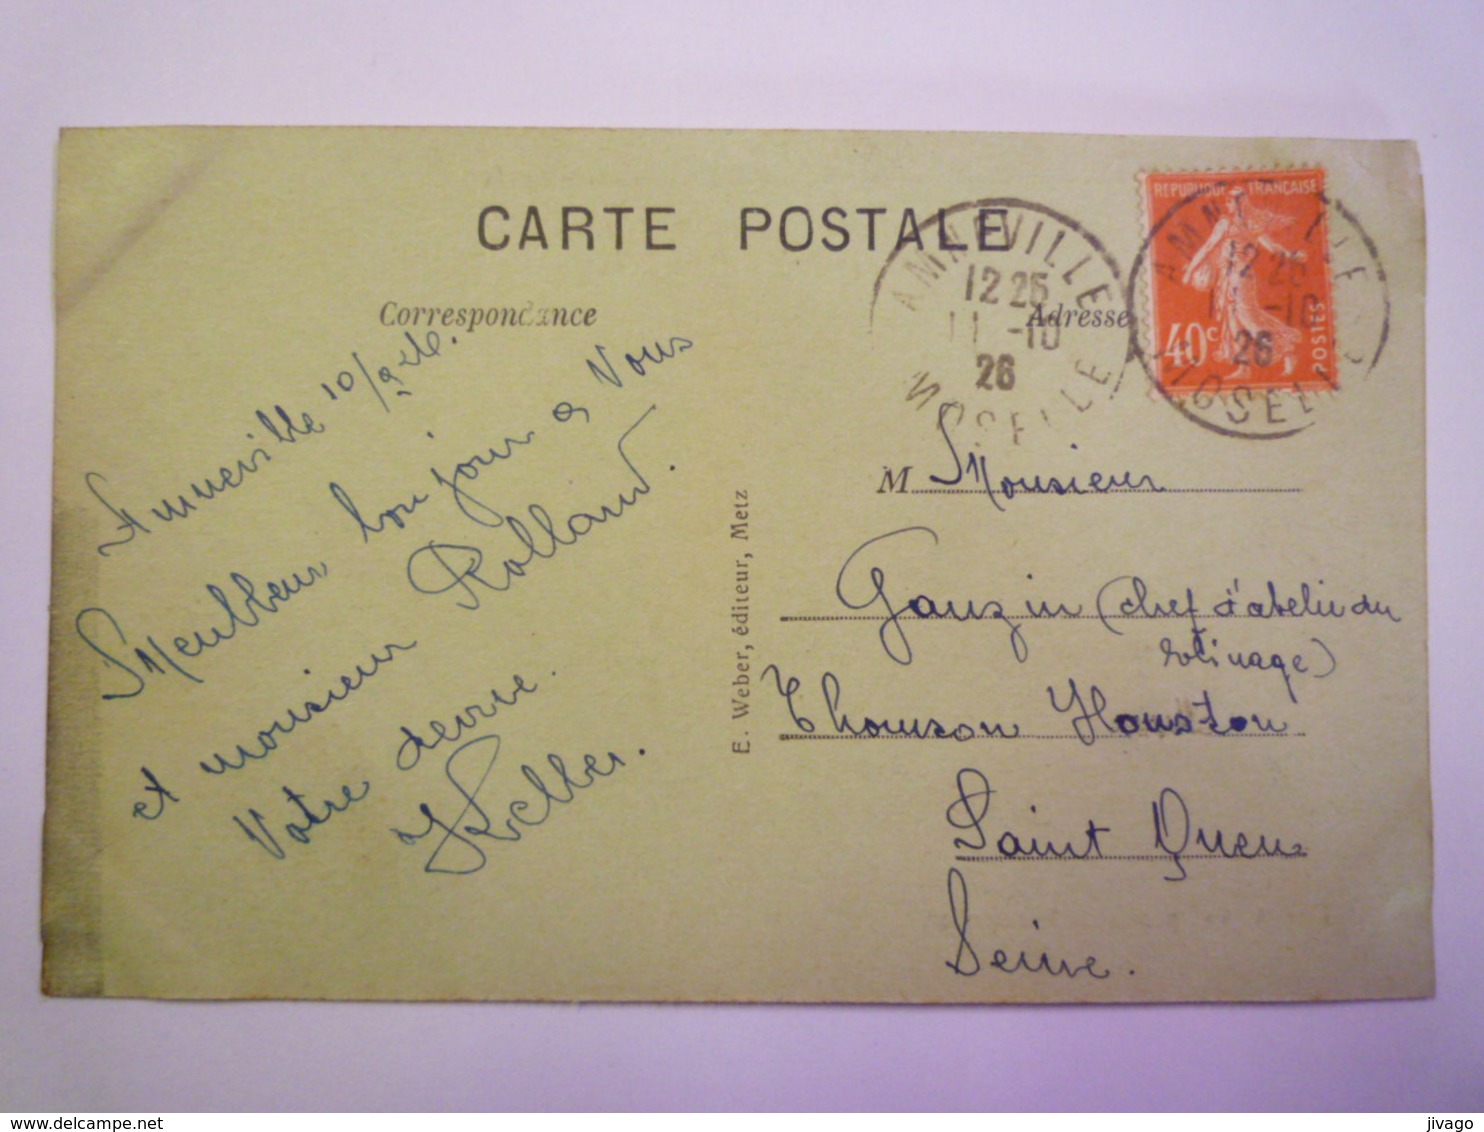 CARTE POSTALE
Correspondance
Adresse
RÉPUBLIQUE FRANÇAISE
40c
POSTES
AMNEVILLE
12 25
11 -10
26
MOSELLE
12 25
11 -10
26
MOSELLE
Amneville 10/
Meilleur bonjour a Vous
et monsieur Rolland.
Votre devoue.
Keller.
E. Weber, éditeur, Metz
M Monsieur
Gauzin (chef d'atelier du
Thomson Houston
Saint Ouen
Seine.
jivago